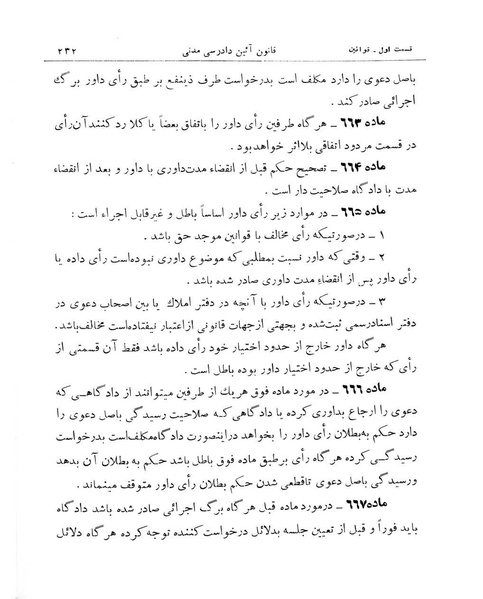 قسمت اول ـ قوانین قانون آئین دادرسی مدنی ۲۳۲
باصل دعوی را دارد مکلف است بدرخواست طرف ذینفع بر طبق رأی داور برگ
اجرائی صادر کند .
ماده ۶۶۳ ـ هر گاه طرفین رأی داور را باتفاق بعضاً یا کلا رد کنند آن رأی
در قسمت مردود اتفاقی بلااثر خواهد بود .
ماده ۶۶۴ ـ تصحیح حکم قبل از انقضاء مدت داوری با داور و بعد از انقضاء
مدت با دادگاه صلاحیت دار است .
ماده ۶۶۵ ـ در موارد زیر رأی داور اساساً باطل و غیر قابل اجراء است :
۱ ـ در صورتیکه رأی مخالف با قوانین موجد حق باشد .
۲ ـ وقتی که داور نسبت بمطلبی که موضوع داوری نبوده است رأی داده یا
رأی داور پس از انقضاء مدت داوری صادر شده باشد .
۳ ـ در صورتیکه رأی داور با آنچه در دفتر املاک یا بین اصحاب دعوی در
دفتر اسناد رسمی ثبت شده و بجهتی از جهات قانونی از اعتبار نیفتاده است مخالف باشد.
هر گاه داور خارج از حدود اختیار خود رأی داده باشد فقط آن قسمتی از
رأی که خارج از حدود اختیار داور بوده باطل است .
ماده ۶۶۶ ـ در مورد ماده فوق هر یک از طرفین میتوانند از دادگاهی که
دعوی را ارجاع بداوری کرده یا دادگاهی که صلاحیت رسیدگی باصل دعوی را
دارد حکم به بطلان رأی داور را بخواهد در اینصورت دادگاه مکلف است بدرخواست
رسیدگی کرده هر گاه رأی بر طبق ماده فوق باطل باشد حکم به بطلان آن بدهد
و رسیدگی باصل دعوی تا قطعی شدن حکم بطلان رأی داور متوقف میماند .
ماده ۶۶۷ ـ در مورد ماده قبل هر گاه برگ اجرائی صادر شده باشد دادگاه
باید فوراً و قبل از تعیین جلسه بدلائل درخواست کننده توجه کرده هر گاه دلائل